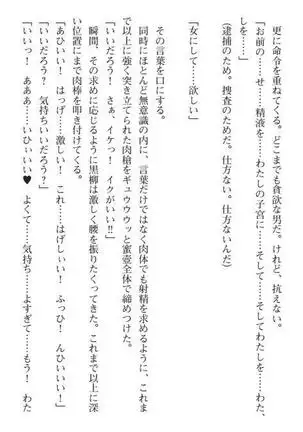 更に命令を重ねてくる。どこまでも貪欲な男だ。けれど、抗えない。
「お前の……せ……精液を……わたしの子宮に……そして……そしてわたしを……わた、
しを……」
(逮捕のため。捜査のためだ。仕方ない。仕方ないんだ)
「女にして……欲しい」
その言葉を口にする。
同時にほとんど無意識の内に、言葉だけではなく肉体でも射精を求めるように、これま
で以上に強く突き立てられた肉槍をギュウウウッと蜜壺全体で締めつけた。
「いいだろう! さぁ、イケっ! イクがいい!!」
その求めに応じるように黒柳は激しく腰を振りたくってきた。これまで以上に深
い位置にまで肉棒を叩き付けてくる。
「あひいい! はっげ……激しい! これ……はげしぃい! ふっひ! んひいいい!」
「いいだろう? 気持ちいいだろう?」
「いいっ! あぁぁ……いひぃいい♥ よくて……気持ち……よすぎて……もう! わた